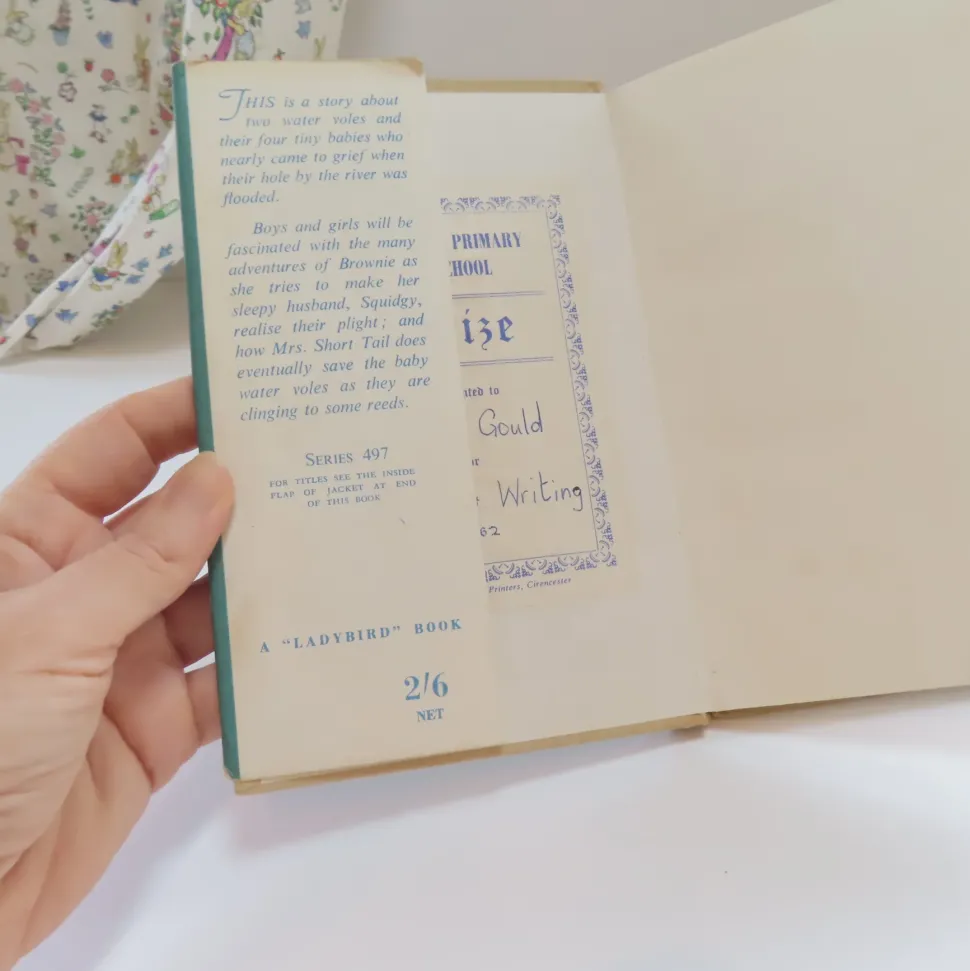 THIS is a story about
two water voles and
their four tiny babies who
nearly came to grief when
their hole by the river was
flooded.
Boys and girls will be
fascinated with the many
adventures of Brownie as
she tries to make her
sleepy husband, Squidgy,
realise their plight; and
how Mrs. Short Tail does
eventually save the baby
water voles as they are
clinging to some reeds.
SERIES 497
FOR TITLES SEE THE INSIDE
FLAP OF JACKET AT END
OF THIS BOOK
A "LADYBIRD" BOOK
2/6
NET
PRIMARY
HOOL
ize
ted to
Gould
Writing
62
Printers, Cirencester